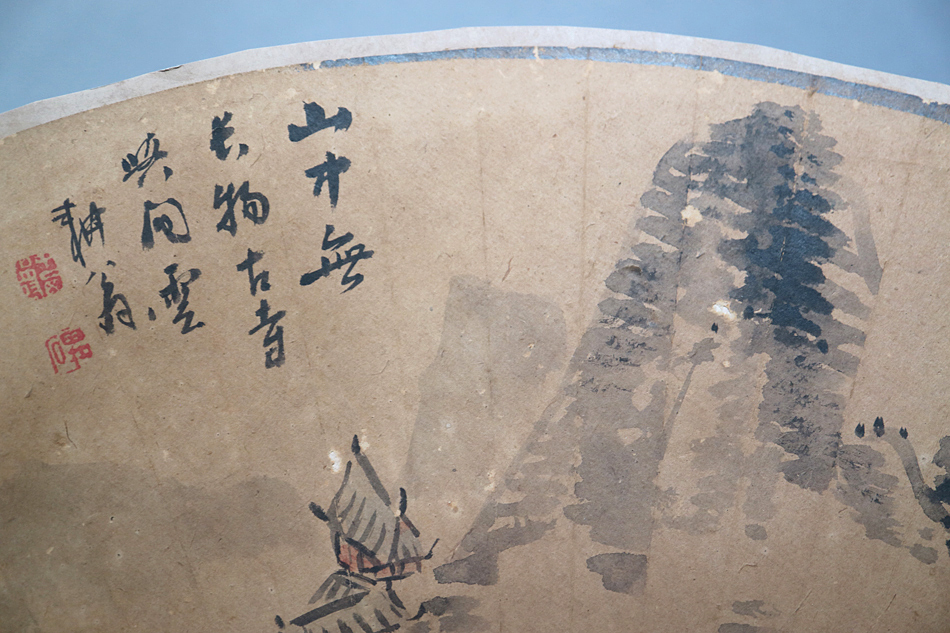 山中無
長物古寺
與間雲
耕翁